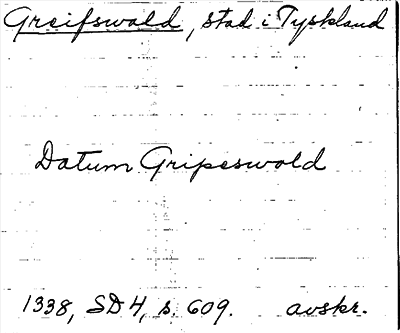 Greifswald, stad i Tyskland
Datum Gripeswold
1338, SD 4, s. 609. avskr.